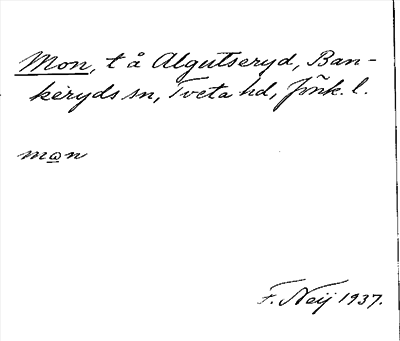 Mon, t å Algutseryd, Ban-
keryds sn, Tveta hd, Jönk. l.
mon
F. Neij 1937.